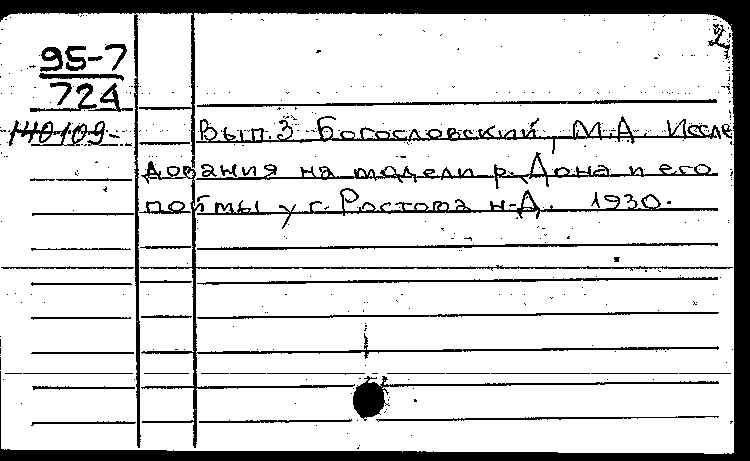 2
95-7
724
140109-
Вып.3 Богословский, М.А. Иссле
дования на модели р. Дона и его
поймы у г. Ростова н-Д. 1930.